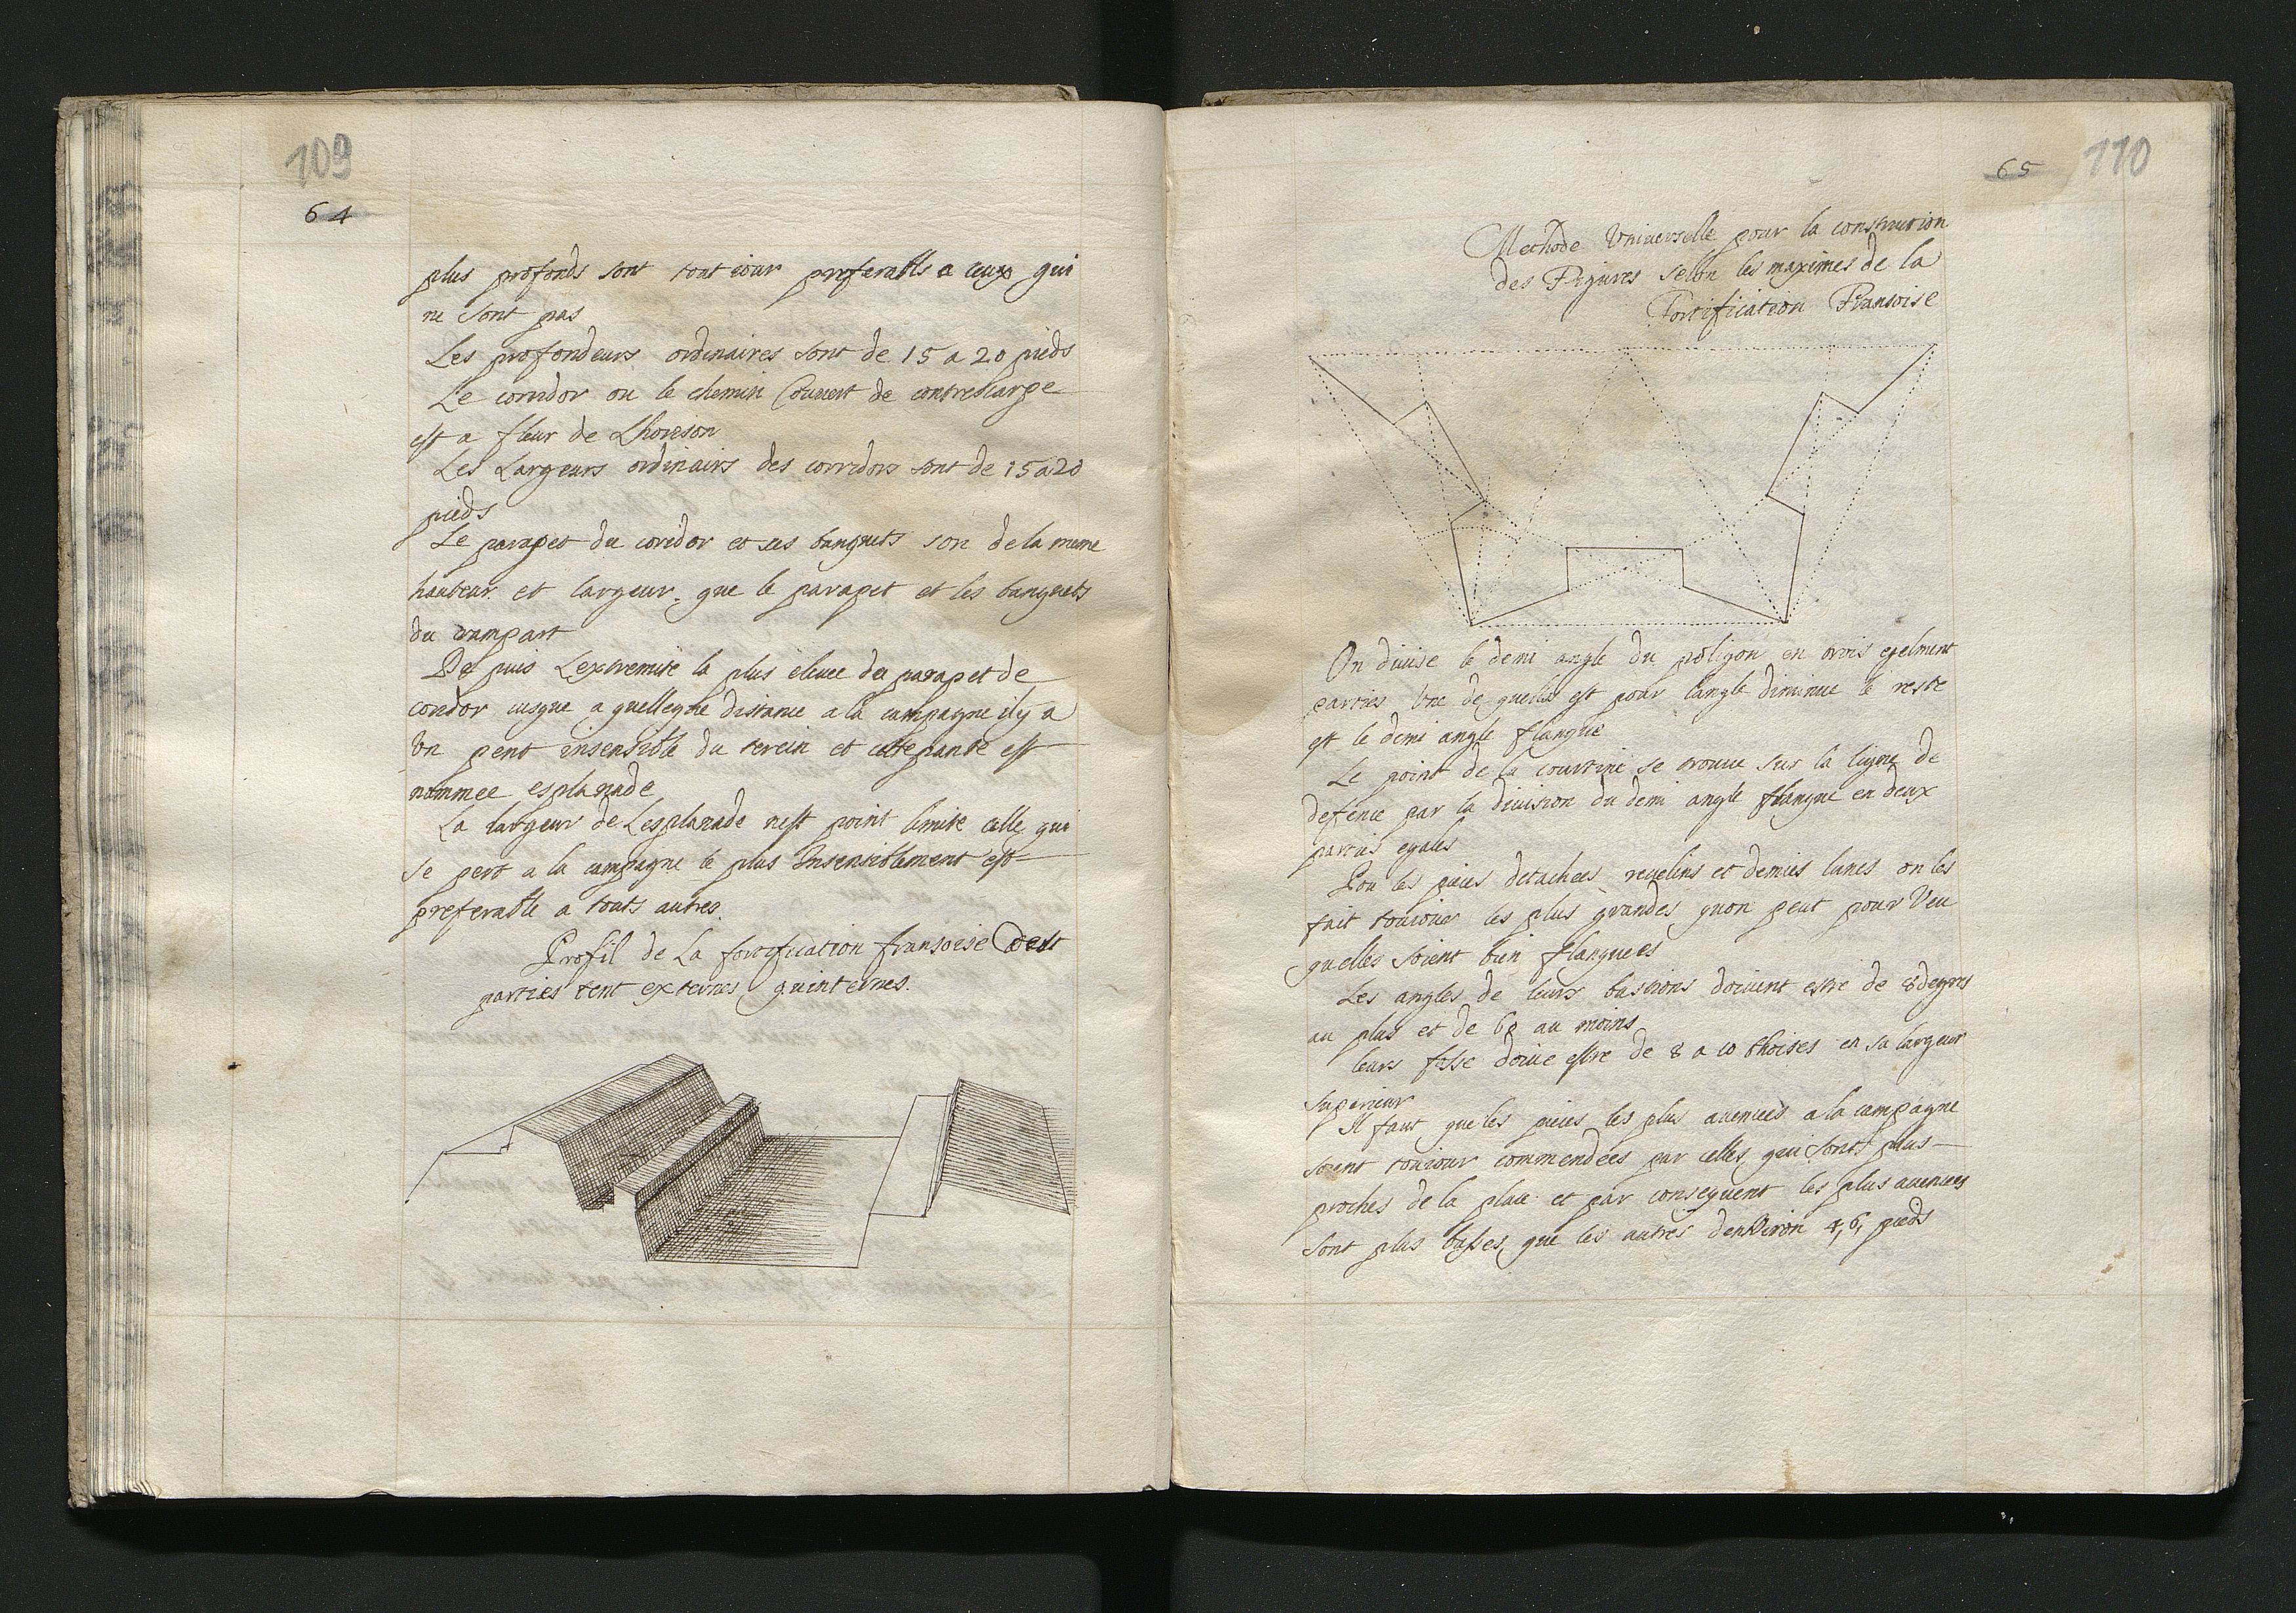 109
64
plus profonds sont tout iour preferable a ceux qui
ne sont pas
Les profondeurs ordinaires sont de 15 a 20 pieds
Le corridor ou le chemin Couuert de contrescarpe
est a fleur de Lhorison
Les Largeurs ordinairs des corridors sont de 15 a 20
pieds
Le parapet du coridor et ses banquets son de la meme
hauteur et largeur que le parapet et les banquets
du rampart
De puis Lextremite la plus eleuee du parapet de
coridor iusque a quelleque distance a la campagne il y a
Vn pent insensible du terein et cette pante est
nommee esplanade
La largeur de Lesplanade nest point limite celle qui
se pert a la campagne le plus Insensiblement est
preferable a touts autres.
Profil de La fortification fransoise
parties tent externes quinternes.
65 110
Methode Vniuerselle pour la constrution
des Figures selon les maximes de la
Fortification Fransoise
On diuise le demi angle du poligon en trois egelment
parties Vne de quelle est pour langle diminue le reste
est le demi angle flanque
Le point de la courtine se trouue sur la ligne de
defence par la diuision du demi angle flanque en deux
parties egales
Pou les pieces detachees reuelins et demies lunes on les
fait touiour les plus grandes quon peut pour Veu
quelles soient bien flanquees
Les angles de leurs bastions doiuent estre de 8 degres
au plus et de 60 au moins
leurs fosse doiue estre de 8 a 10 thoises en sa largeur
superieur
Il faut que les pieces les plus auencees a la campagne
soient touiour commendees par celles qui sont plus
proches de la place et par consequent les plus auencees
sont plus basses que les autres denViron 4, 6, pieds